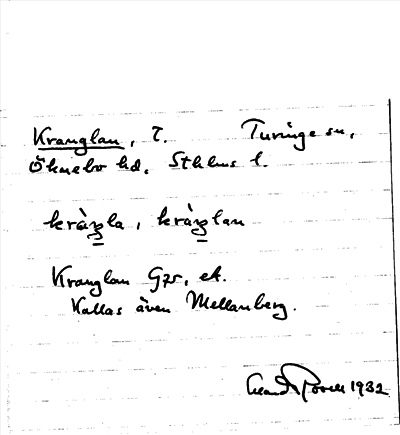 Kranglan, T. Turinge sn,
Öknebo hd, Sthlms l.
kràŋla, kràŋlan
Kranglan Gzr, ek.
Kallas även Mellanberg.
1932